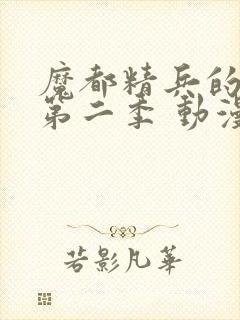 魔都精兵的
第二季 動漫
若影凡華